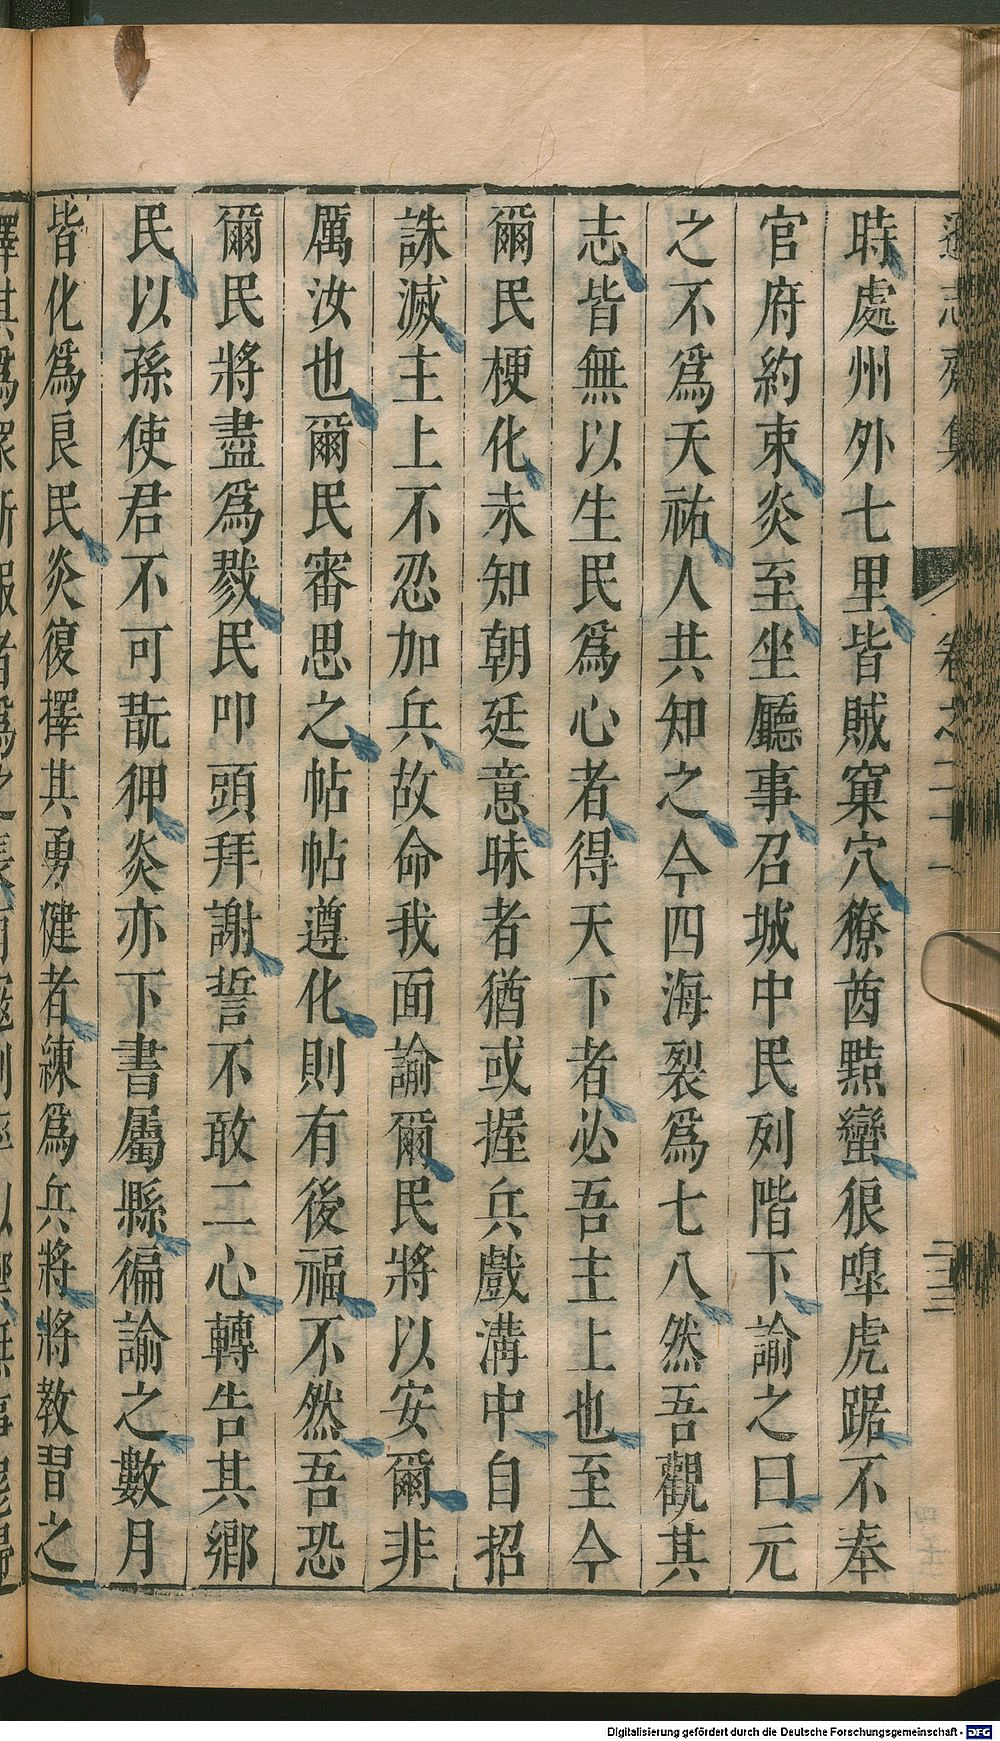 遜志齋集 卷之二十一
時處州外七里皆賊窠穴獠酋黠蠻狼嘷虎踞不奉
官府約束炎至坐廳事召城中民列階下諭之曰元
之不爲天祐人共知之今四海裂爲七八然吾觀其
志皆無以生民爲心者得天下者必吾主上也至今
爾民梗化未知朝廷意昧者猶或握兵戲溝中自招
誅滅主上不忍加兵故命我面諭爾民將以安爾非
厲汝也爾民審思之帖帖遵化則有後福不然吾恐
爾民將盡爲戮民叩頭拜謝誓不敢二心轉告其鄉
民以孫使君不可翫狎炎亦下書屬縣徧諭之數月
皆化爲良民炎復擇其勇健者練爲兵將將教習之
Digitalisierung gefördert durch die Deutsche Forschungsgemeinschaft - DFG